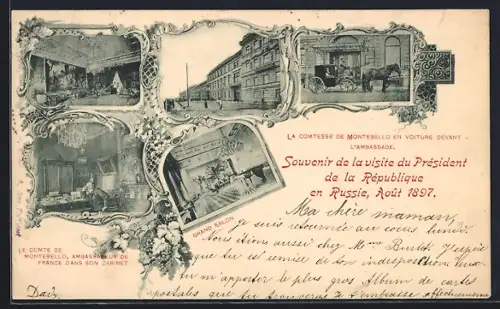 LA COMTESSE DE MONTEBELLO EN VOITURE DEVANT
L'AMBASSADE.
Souvenir de la visite du Président
de la République
en Russie, Août 1897.
GRAND SALON
LE COMTE DE
MONTEBELLO, AMBASSADEUR DE
FRANCE DANS SON CABINET
Ma chère maman,
je suis retournée au cours lundi.
Nous étions aussi chez Mme
que tu es remise de ton indisposition. Veux
tu m'apporter le plus gros Album de cartes
postales que tu trouveras